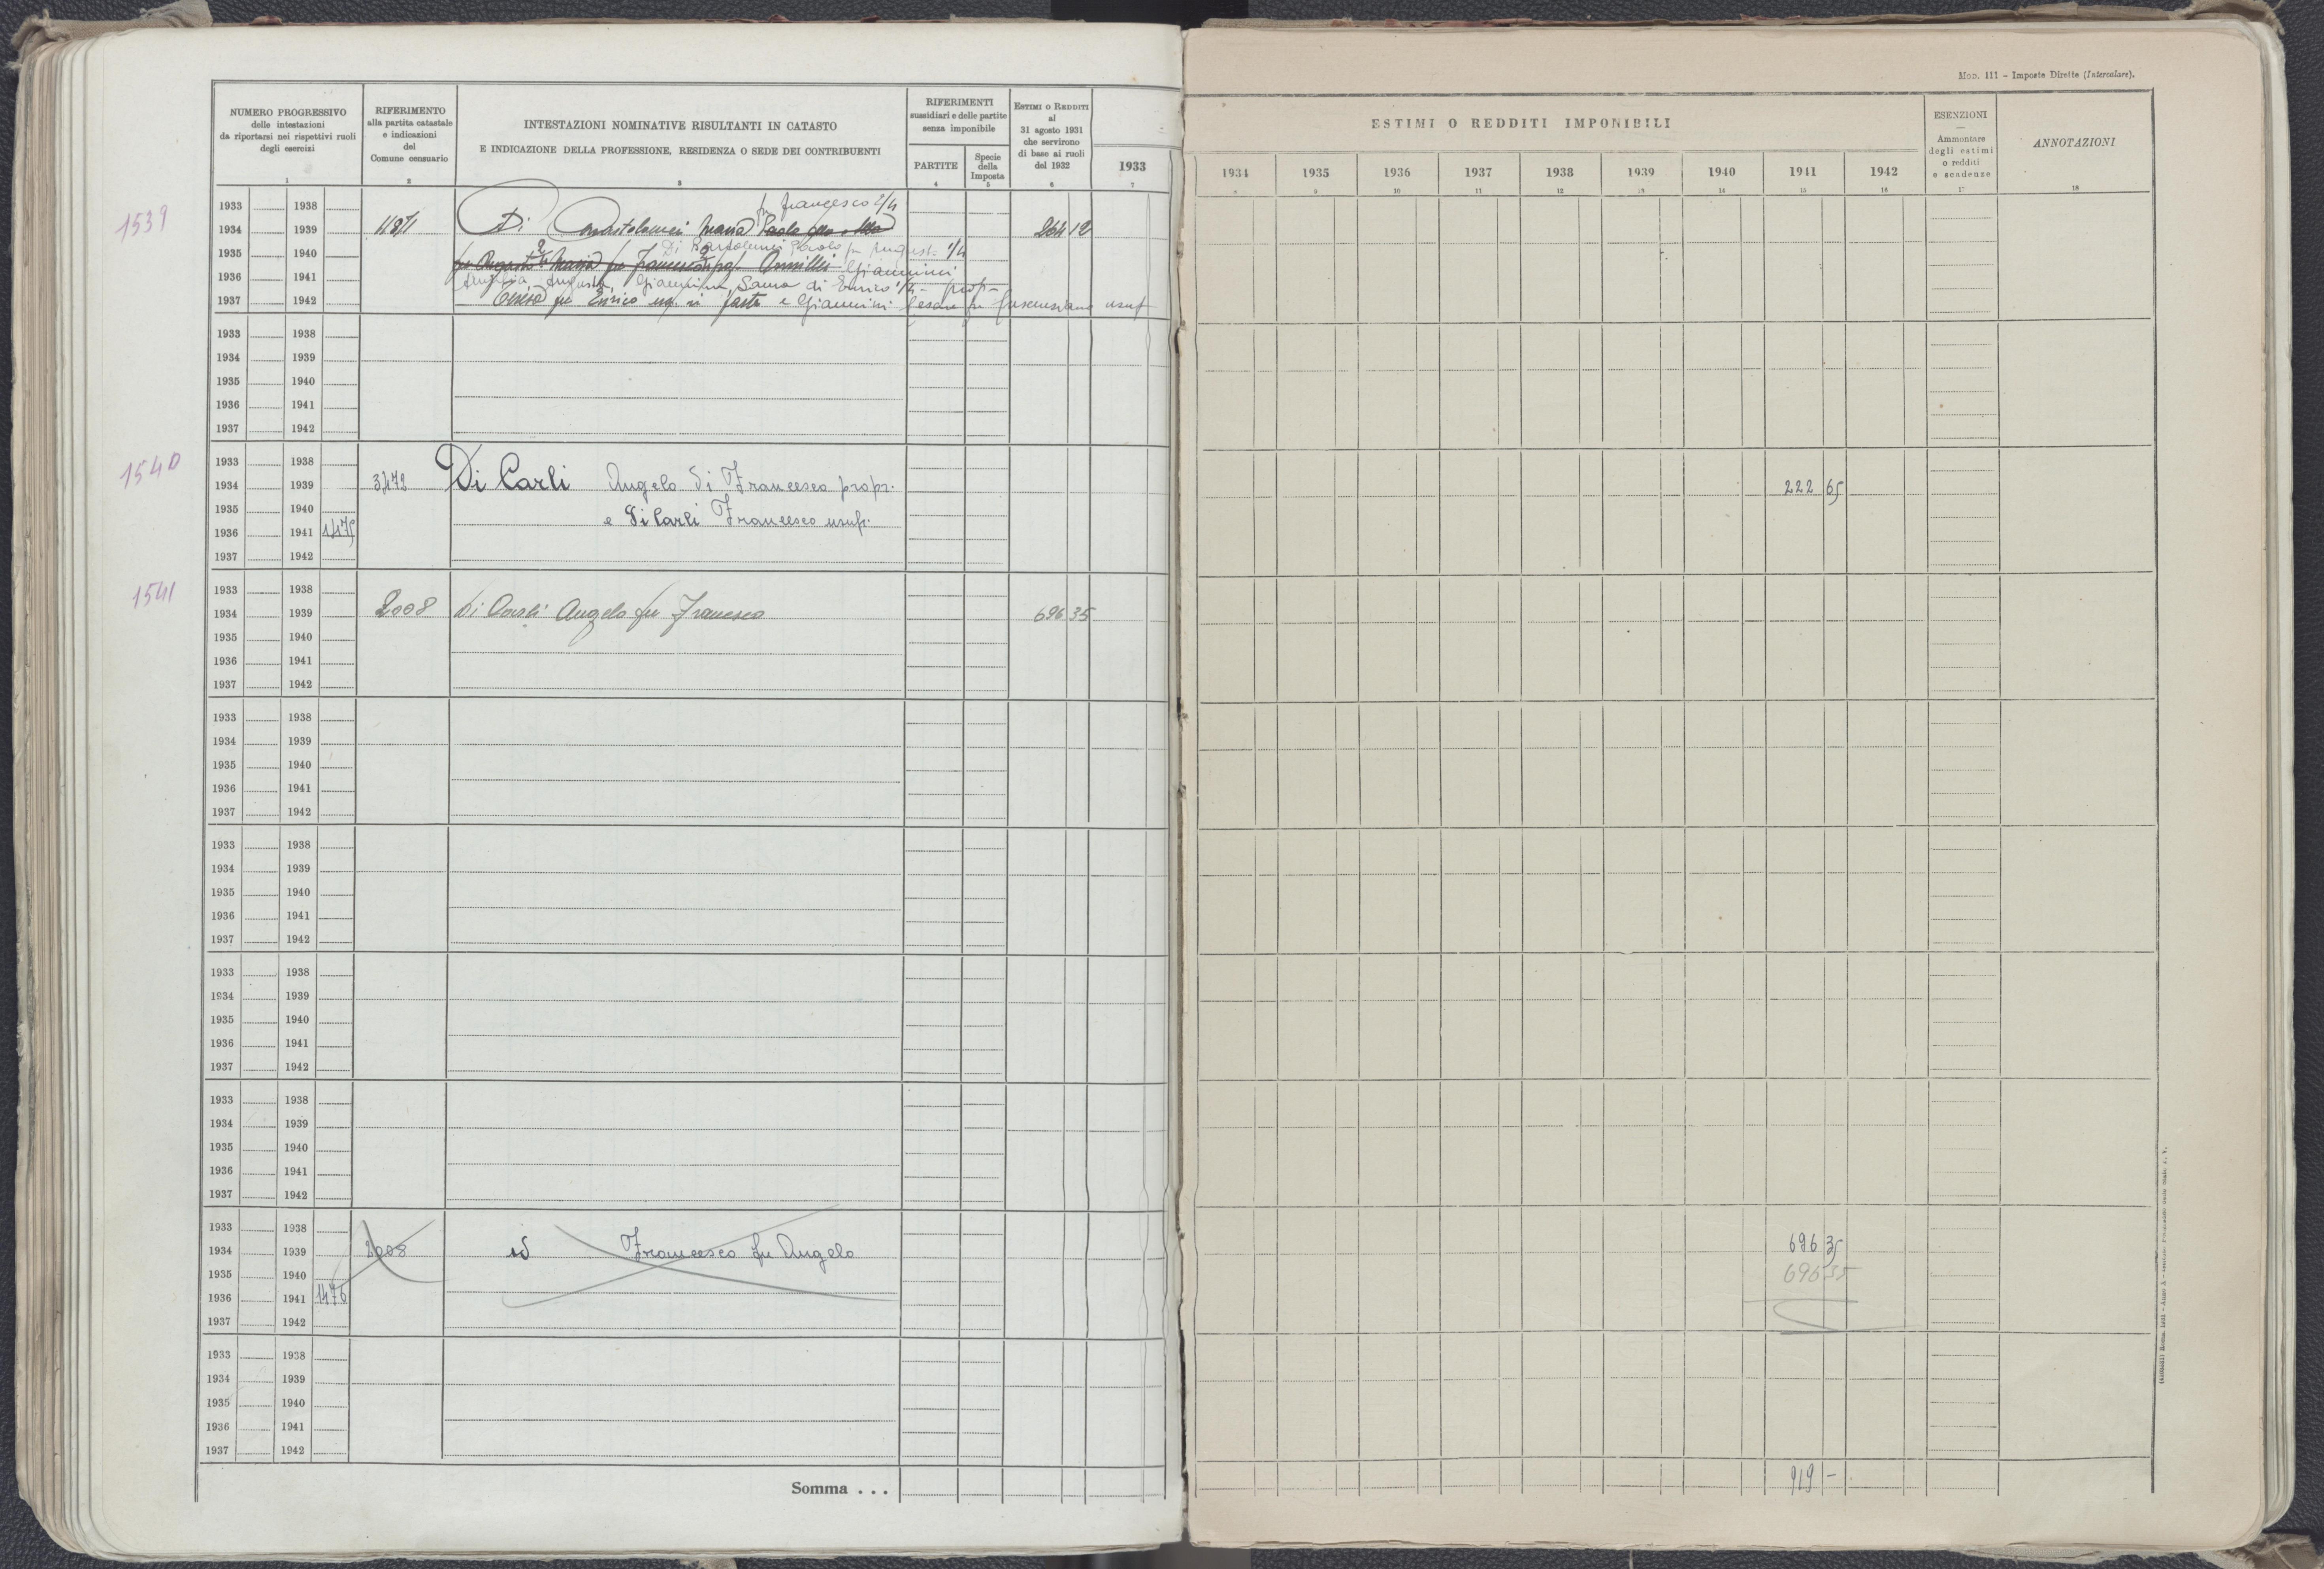 Mod. 111 - Imposte Dirette (Intercalare).
NUMERO PROGRESSIVO
delle intestazioni
da riportarsi nei rispettivi ruoli
degli esercizi
1
RIFERIMENTO
alla partita catastale
e indicazioni
del
Comune censuario
2
INTESTAZIONI NOMINATIVE RISULTANTI IN CATASTO
E INDICAZIONE DELLA PROFESSIONE, RESIDENZA O SEDE DEI CONTRIBUENTI
3
RIFERIMENTI
sussidiari e delle partite
senza imponibile
PARTITE
4
Specie
della
Imposta
5
ESTIMI O REDDITI
al
31 agosto 1931
che servirono
di base ai ruoli
del 1932
6
1933
7
ESTIMI O REDDITI IMPONIBILI
1934 1935 1936 1937 1938 1939 1940 1941 1942
8 9 10 11 12 13 14 15 16
ESENZIONI
Ammontare
degli estimi
o redditi
e scadenze
17
ANNOTAZIONI
18
1933 1938 fu Francesco 2/4
1539 1934 1939 Di Bartolomei Maria Paolo 264 12
1935 1940 Di Bartolomei Paolo fu August. 1/4
fu Augusto Maria fu Francesco Giannini
1936 1941
Augusta, Giannina, di Enrico 1/4 - prop -
1937 1942 fu Enrico in parte e Giannini Cesare fu usuf
1933 1938
1934 1939
1935 1940
1936 1941
1937 1942
1540 1933 1938
1934 1939 3472 Di Carli Angelo di Francesco propr. 222 65
1935 1940 e Di Carli Francesco usuf.
1936 1941 1475
1937 1942
1541 1933 1938
1934 1939 2008 Di Carli Angelo fu Francesco 696 35
1935 1940
1936 1941
1937 1942
1933 1938
1934 1939
1935 1940
1936 1941
1937 1942
1933 1938
1934 1939
1935 1940
1936 1941
1937 1942
1933 1938
1934 1939
1935 1940
1936 1941
1937 1942
1933 1938
1934 1939
1935 1940
1936 1941
1937 1942
1933 1938
1934 1939 2008 id Francesco fu Angelo 696 35
1935 1940 696 35
1936 1941 1476
1937 1942
1933 1938
1934 1939
1935 1940
1936 1941
1937 1942
Somma . . . 919 -